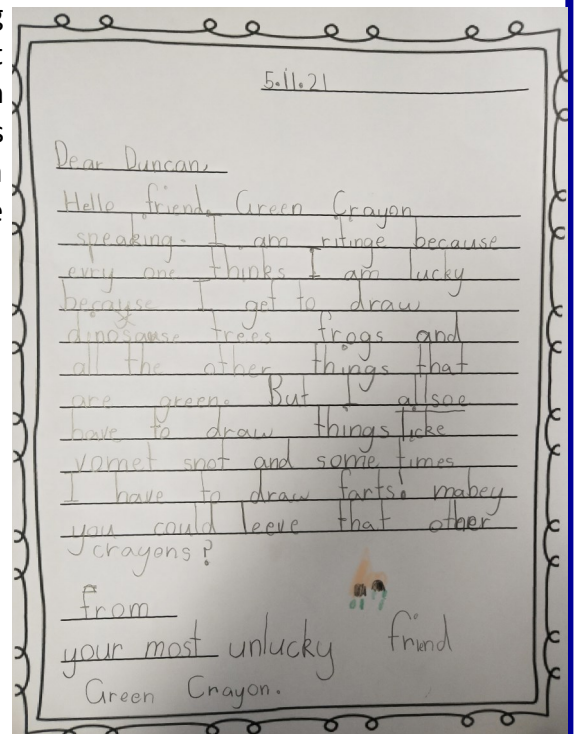 5.11.21
Dear Duncan,
Hello friend. Green Crayon
speaking. I am ritinge because
evry one thinks I am lucky
because I get to draw
dinosause trees frogs and
all the other things that
are green. But I allsoe
have to draw things licke
vomet snot and some times
I have to draw farts! mabey
you could leeve that other
crayons?
from
your most unlucky friend
Green Crayon.